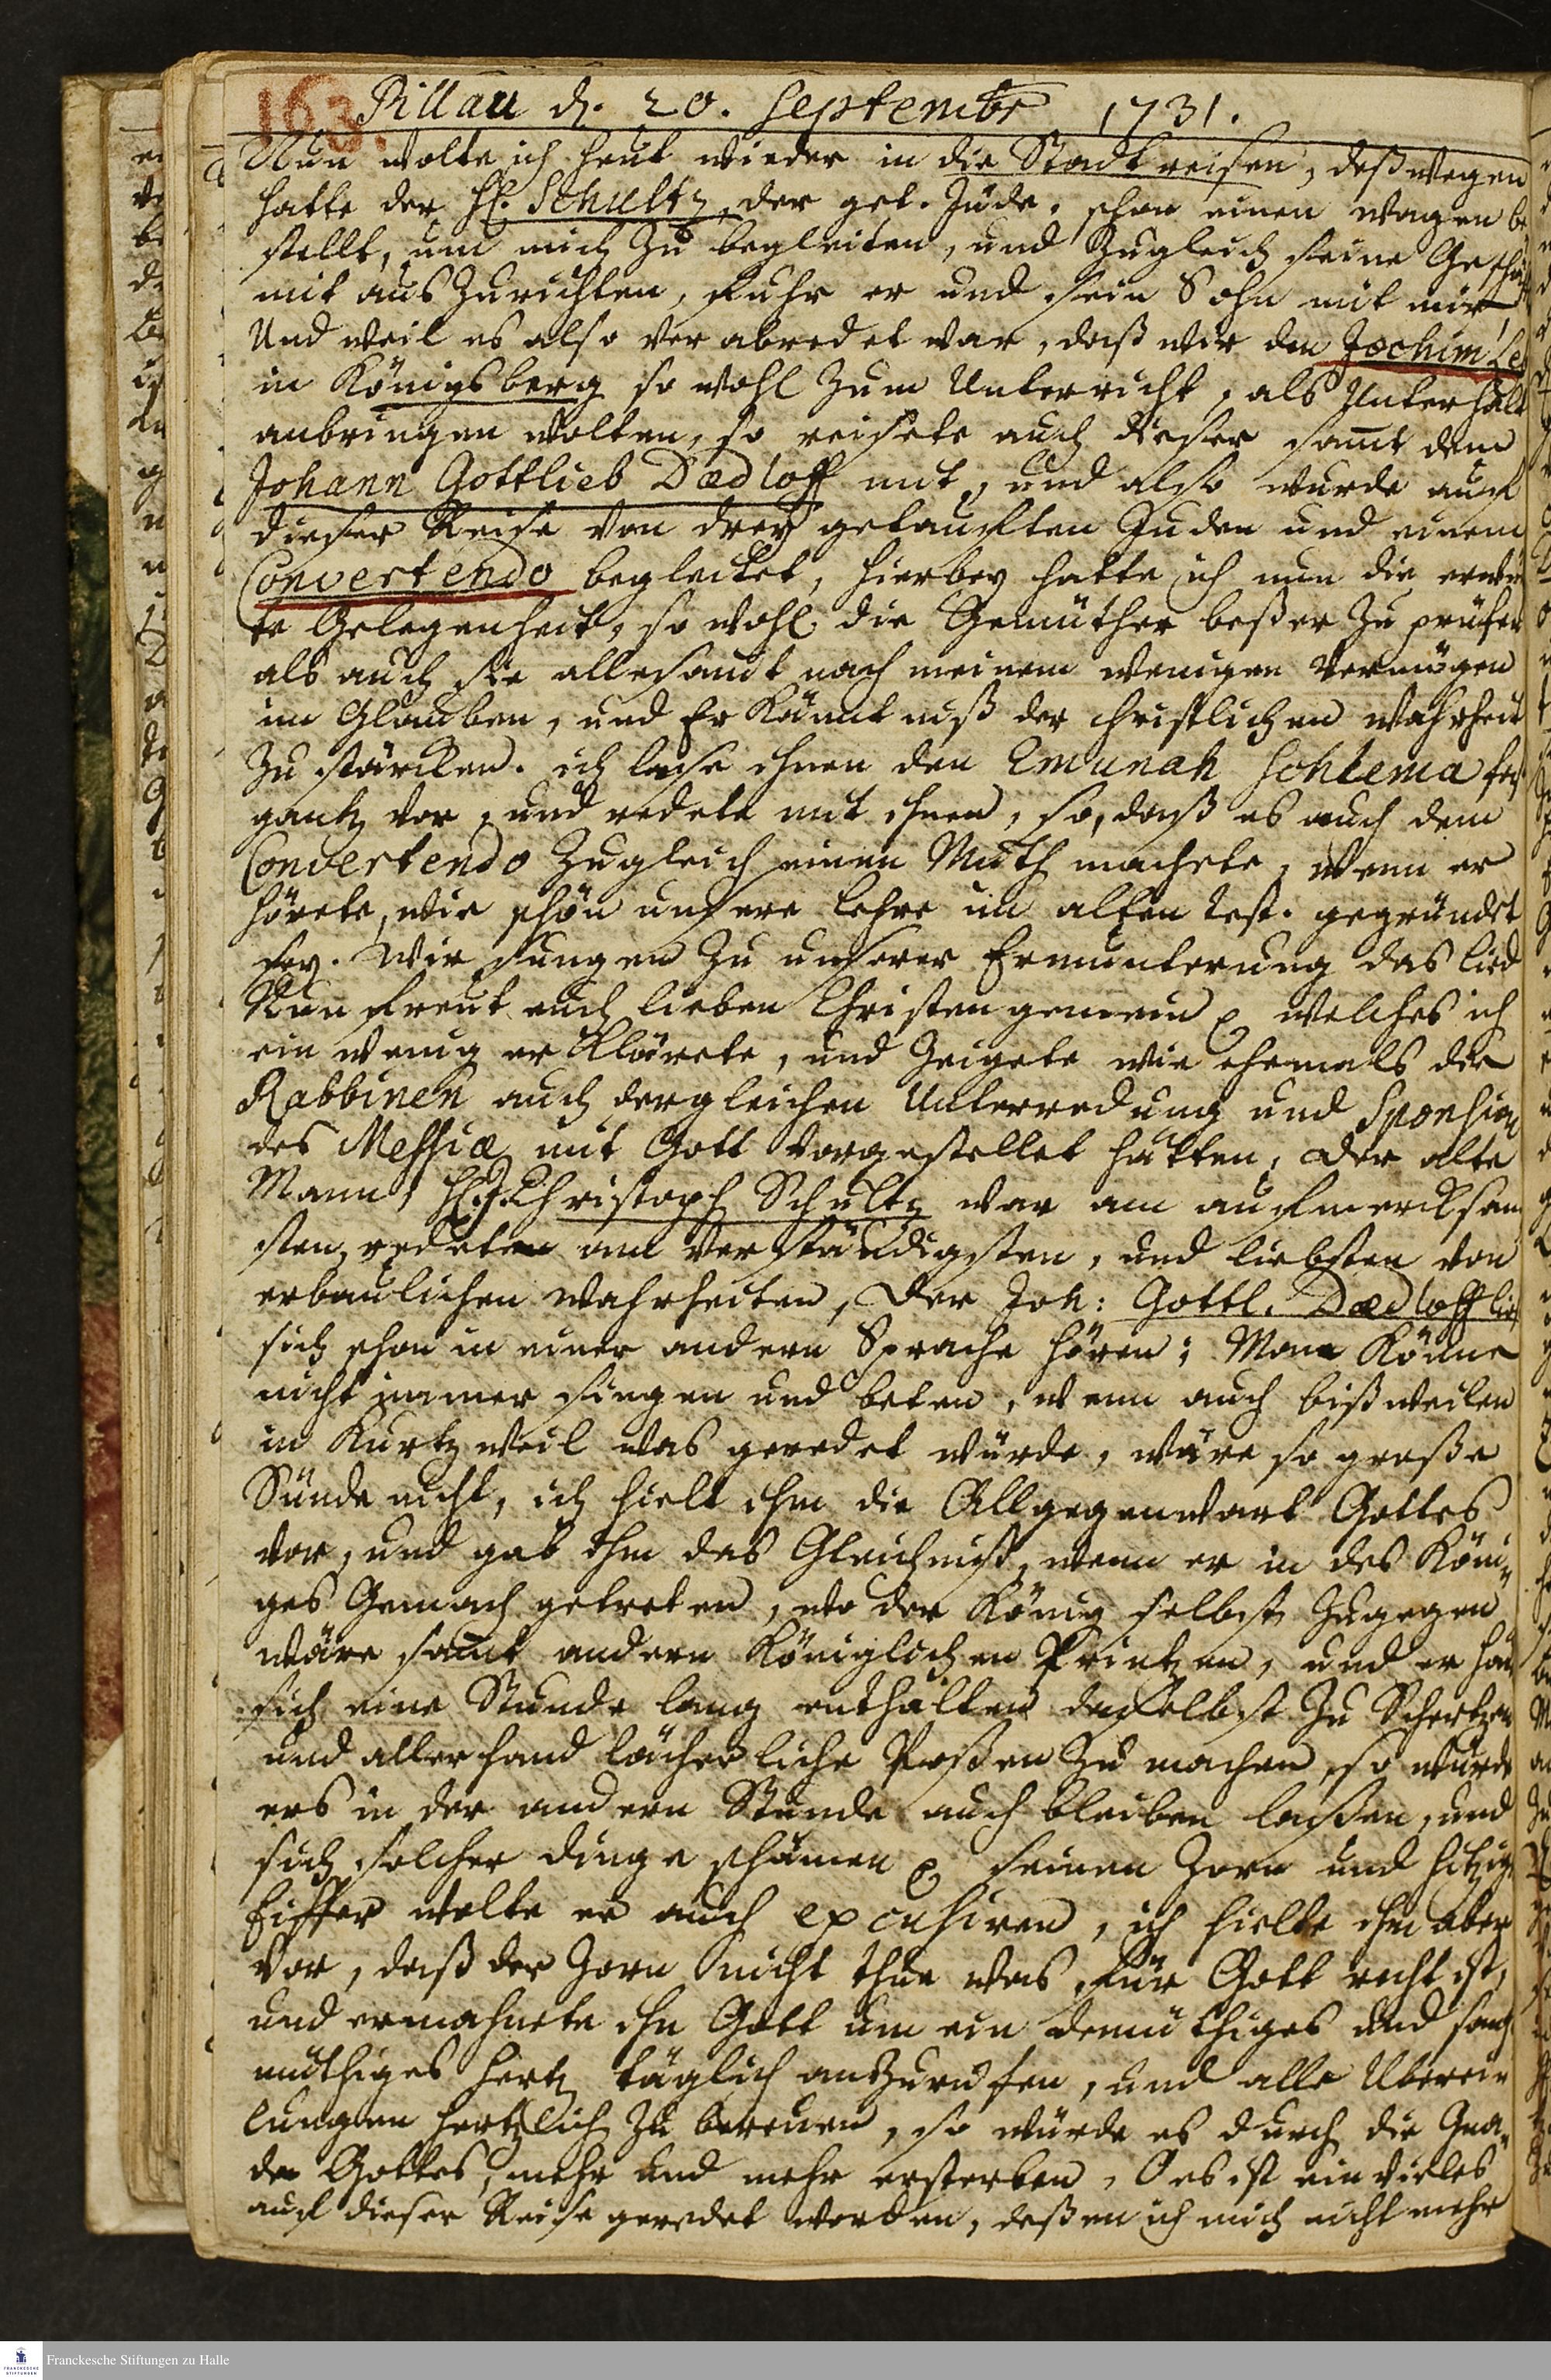 163. Pillau d. 20. Septembr 1731.
Nun wolte ich heut wieder in die Stadt reisen, deßwegen
hatte der H. Schultz, der get. Jude, schon einen wagen be
stellt, um mich zu begleiten, und zugleich seine Geschäft
mit auszurichten, fuhr er und sein Sohn mit mir,
Und weil es also verabredet war, daß wir den Jochim
in Königsberg so wohl zum Unterricht, als Unterhalt
anbringen wolten, so reisete auch dieser samt dem
Johann Gottlieb Dædloff mit, und also wurde auf
dieser Reise von drey getaufften Juden und einem
Convertendo begleitet, hierbey hatte ich nun die
te Gelegenheit, so wohl die Gemüther beßer zu prüfen
als auch sie allesamt nach meinem wenigen vermögen
im Glauben, und Erkäntniß der christlichen wahrheit
zu stärcken. ich lase ihnen den Emunah Schlema fast
gantz vor, und redete mit ihnen, so, daß es auch dem
Convertendo zugleich einen Muth machete, wenn er
hörete, wie schön unsere Lehre im alten Test. gegründet
sey. wir sungen zu unserer Ermunterung das Lied
Nun freut euch lieben Christen gemein p welches ich
ein wenig erklärete, und zeigete wie ehemals die
Rabbinen auch dergleichen Unterredung und Sponsion
des Messiæ mit Gott vorgestellet hätten, der alte
Mann, H. J. Christoph Schultz war am aufmercksam
sten, redeten am verständigsten, und liebsten von
erbaulichen wahrheiten, der Joh: Gottl. Dædloff lies
sich schon in einer andern Sprache hören; Man könne
nicht immer singen und beten, wenn auch bißweilen
in Kurtzweil was geredet würde, wäre so große
Sünde nicht, ich hielt ihm die Allgegenwart Gottes
vor, und gab ihm das Gleichniß, wenn er in des Köni„
ges Gemach getreten, wo der König selbst zugegen
wäre samt andern Königlichen Printzen, und er hät
sich eine Stunde lang enthalten daselbst zu Schertzen
und allerhand lächerliche Poßen zu machen, so würde
ers in der andern Stunde auch bleiben laßen, und
sich solcher dinge schämen p seinen Zorn und hitzig
Eiffer wolte er auch excusiren, ich hielte ihm aber
vor, daß der Zorn nicht thue was für Gott recht ist,
und ermahnete ihn Gott um ein demüthiges und sanft
müthiges Hertz täglich anzurufen, und alle Uberei„
lungen hertzlich zu bereuen, so würde es durch die Gna„
de Gottes, mehr und mehr ersterben, es ist ein vieles
auf dieser Reise geredet worden, deßen ich mich nicht mehr
Franckesche Stiftungen zu Halle